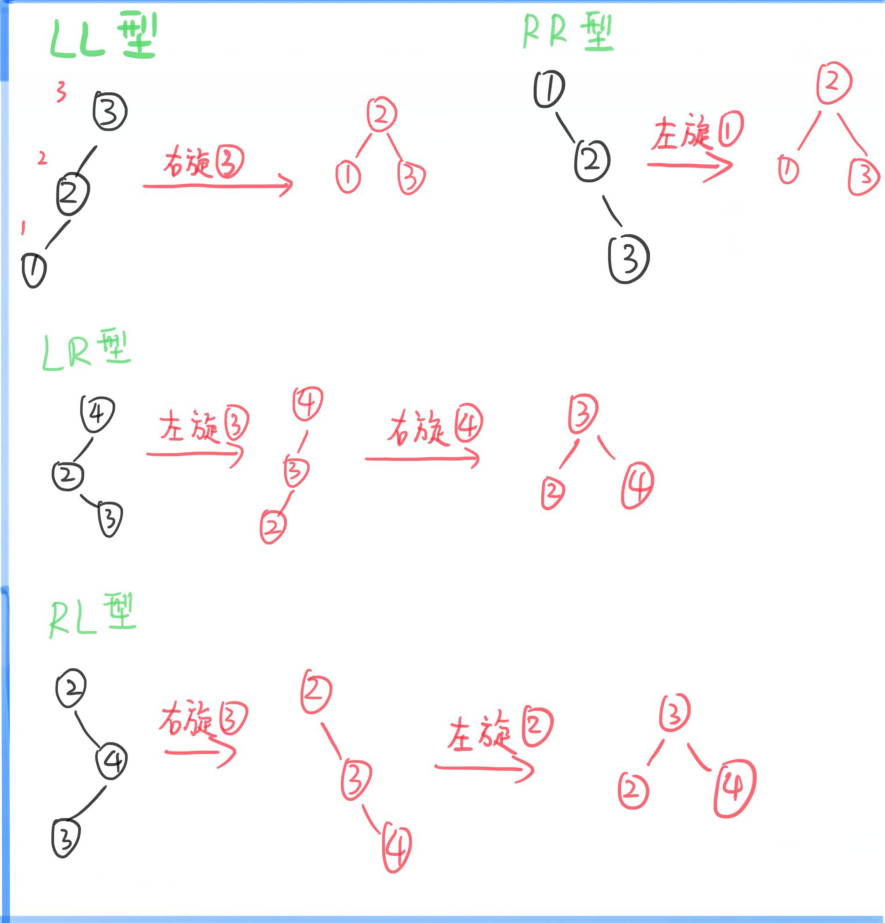 LL型
3
③
2
②
1
①
右旋③
②
① ③
RR型
①
②
③
左旋①
②
① ③
LR型
④
②
③
左旋③
④
③
②
右旋④
③
② ④
RL型
②
④
③
右旋③
②
③
④
左旋②
③
② ④